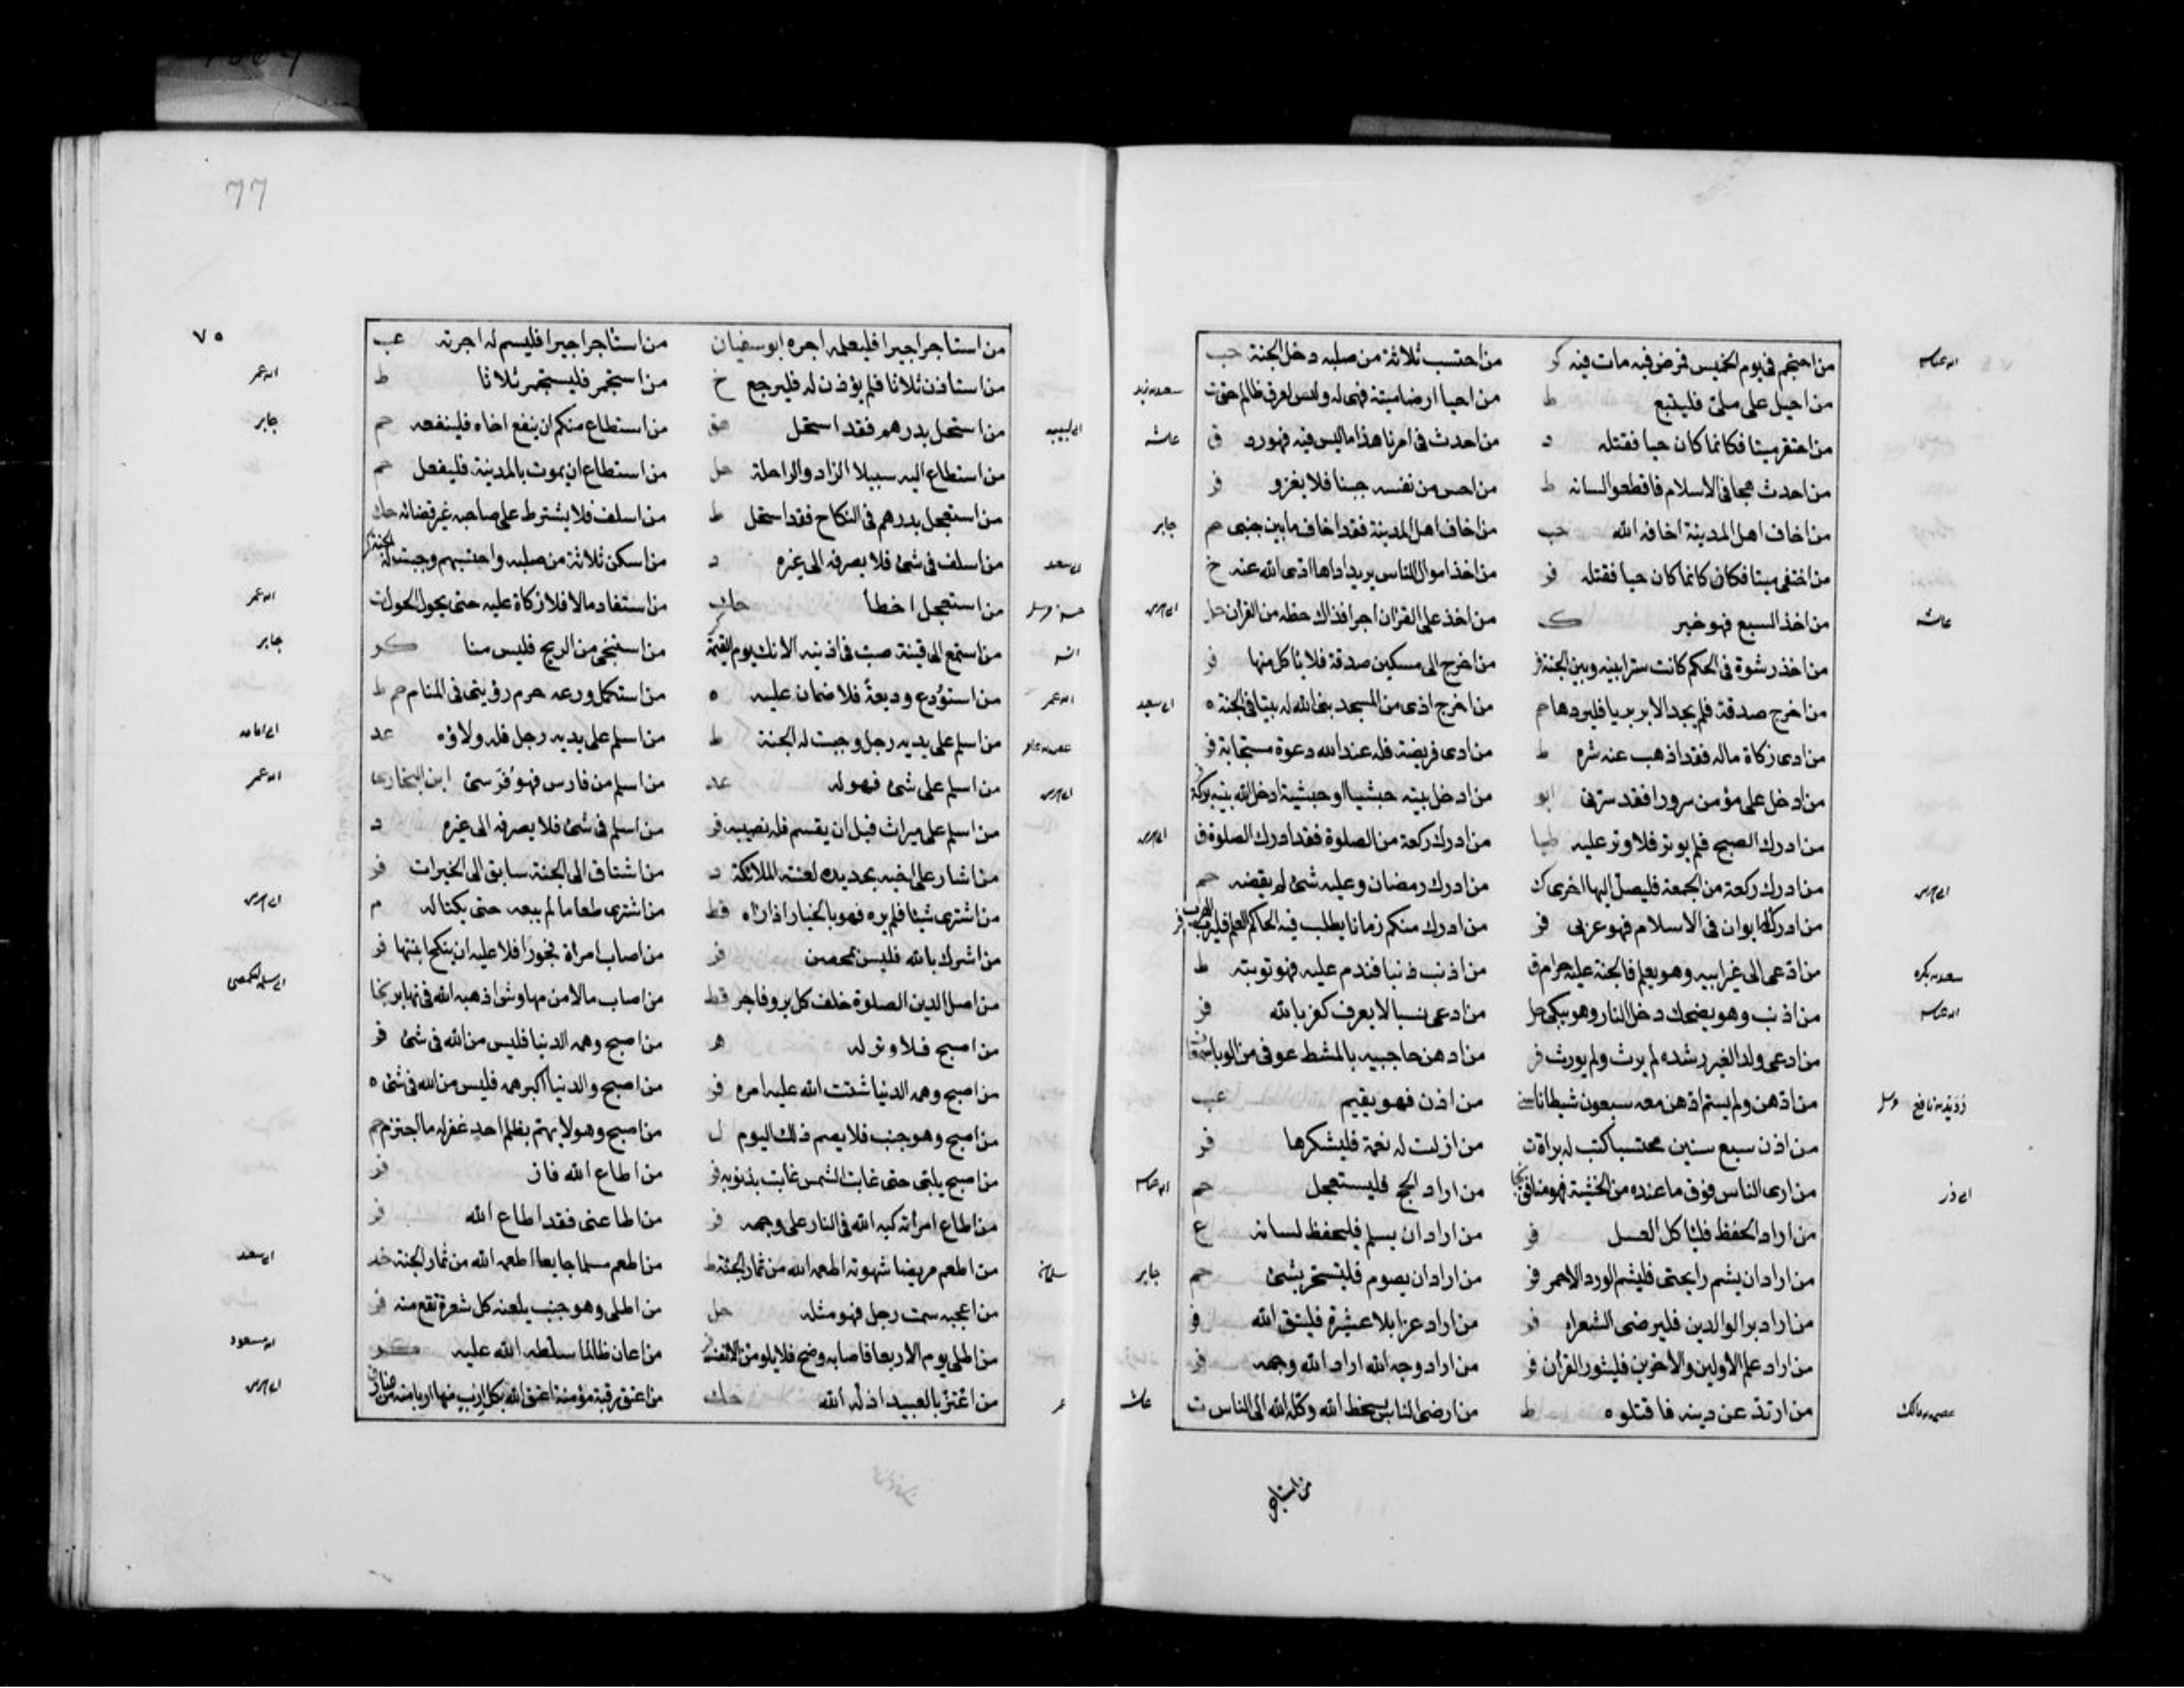 من احتجم فى يوم الخميس فمرض فيه مات فيه كر من احتسب ثلاثة من صلبه دخل الجنة حب
من احيل على ملئ فليتبع ط من احيا ارضا ميتة فهى له وليس لعرق ظالم حق ت
من احتقر ميتا فكانما كان حيا فقتله د من احدث فى امرنا هذا ما ليس فيه فهو رد ق عائشه
من احدث هجا فى الاسلام فاقطعوا لسانه ط من احس من نفسه جبنا فلا يغزو فر
من اخاف اهل المدينة اخافه الله حب من اخاف اهل المدينة فقد اخاف ما بين جنبى حم جابر
من اختفى ميتا فكان كانما كان حيا فقتله فر من اخذ اموال الناس يريد اداها ادى الله عنه خ
عائشه من اخذ السبع فهو خير ك من اخذ على القران اجرا فذاك حظه من القران حل
من اخذ رشوة فى الحكم كانت سترا بينه وبين الجنة فر من اخرج الى مسكين صدقة فلا ياكل منها فر
من اخرج صدقة فلم يجد الا بربريا فليردها حم من اخرج اذى من المسجد بنى الله له بيتا فى الجنة ه
من ادى زكاة ماله فقد اذهب عنه شره ط من ادى فريضة فله عند الله دعوة مستجابة فر
من ادخل على مؤمن سرورا فقد سرنى ابو من ادخل بيته حبشيا او حبشية ادخل الله بيته بركة
من ادرك الصبح فلم يوتر فلا وتر عليه طيا من ادرك ركعة من الصلوة فقد ادرك الصلوة ق
من ادرك ركعة من الجمعة فليصل اليها اخرى ك من ادرك رمضان وعليه شئ لم يقضه حم
من ادرك له ابوان فى الاسلام فهو عربى فر من ادرك منكم زمانا يطلب فيه الحاكم العلم
من ادعى الى غير ابيه وهو يعلم فالجنة عليه حرام ق من اذنب ذنبا فندم عليه فهو توبته ط
من اذنب وهو يضحك دخل النار وهو يبكى حل من ادعى نسبا لا يعرف كفر بالله فر
من ادعى ولدا لغير رشده لم يرث ولم يورث فر من ادهن حاجبيه بالمشط عوفى من الوبا
من ادهن ولم يسم ادهن معه سبعون شيطانا من اذن فهو يقيم عب
من اذن سبع سنين محتسبا كتب له براة ت من ازلت له نعمة فليشكرها فر
ابى ذر من ارى الناس فوق ما عنده من الخشية فهو منافق من اراد الحج فليستعجل حم
من اراد الحفظ فلياكل العسل فر من اراد ان يسلم فليحفظ لسانه ع
من اراد ان يشم رايحتى فليشم الورد الاحمر فر من اراد ان يصوم فليتسحر بشئ حم جابر
من اراد بر الوالدين فليرضى الشعراء فر من اراد عزا بلا عشيرة فليتق الله فر
من اراد علم الاولين والاخرين فليثور القران فر من اراد وجه الله اراد الله وجهه فر
من ارتد عن دينه فاقتلوه ط من ارضى الناس بسخط الله وكله الله الى الناس ت
من استاجر
77
٧٥
من استاجر اجيرا فليعلمه اجره ابو سفيان من استاجر اجيرا فليسم له اجرته عب
من استاذن ثلاثا فلم يؤذن له فليرجع خ من استجمر فليستجمر ثلاثا ط
من استحل بدرهم فقد استحل هق من استطاع منكم ان ينفع اخاه فلينفعه حم جابر
من استطاع اليه سبيلا الزاد والراحلة حل من استطاع ان يموت بالمدينة فليفعل حم
من استعجل بدرهم فى النكاح فقد استحل ط من اسلف فلا يشترط على صاحبه غير قضائه
من اسلف فى شئ فلا يصرفه الى غيره د من اسكن ثلاثة من صلبه واحتسبهم وجبت له الجنة
من استعجل اخطأ حك من استفاد مالا فلا زكاة عليه حتى يحول الحول ت
من استمع الى قينة صب فى اذنيه الانك يوم القيمة من استنجى من الريح فليس منا كر جابر
من استودع وديعة فلا ضمان عليه ه من استكمل ورعه حرم رؤيتى فى المنام
من اسلم على يديه رجل وجبت له الجنة ط من اسلم على يديه رجل فله ولاؤه عد
من اسلم على شئ فهو له عد من اسلم من فارس فهو قرشى ابن النجار
من اسلم على ميراث قبل ان يقسم فله نصيبه فر من اسلم فى شئ فلا يصرفه الى غيره د
من اشار على اخيه بحديده لعنته الملائكة د من اشتاق الى الجنة سابق الى الخيرات فر
من اشترى شيئا فلم يره فهو بالخيار اذا رآه قط من اشترى طعاما لم يبعه حتى يكتاله م
من اشرك بالله فليس بمحصن فر من اصاب امراة فجورا فلا عليه ان ينكح ابنتها فر
من اصل الدين الصلوة خلف كل بر وفاجر قط من اصاب مالا من مهاوش اذهبه الله فى نهابر
من اصبح فلا وتر له هر من اصبح وهمه الدنيا فليس من الله فى شئ فر
من اصبح وهمه الدنيا شتت الله عليه امره فر من اصبح والدنيا اكبر همه فليس من الله فى شئ ه
من اصبح وهو جنب فلا يصم ذلك اليوم ل من اصبح وهو لا يهتم بظلم احد غفر له ما اجترم
من اصبح يلبى حتى غابت الشمس غابت بذنوبه فر من اطاع الله فاز فر
من اطاع امراته كبه الله فى النار على وجهه فر من اطاعنى فقد اطاع الله فر
من اطعم مريضا شهوته اطعمه الله من ثمار الجنة ط من اطعم مسلما جايعا اطعمه الله من ثمار الجنة
من اعجبه سمت رجل فهو مثله حل من اطلى وهو جنب يلعنه كل شعرة تقع منه فر
من اطلى يوم الاربعا فاصابه وضح فلا يلومن الا نفسه من اعان ظالما سلطه الله عليه كر
من اعتز بالعبيد اذله الله حك من اعتق رقبة مؤمنة اعتق الله بكل ارب منها اربا منه من النار